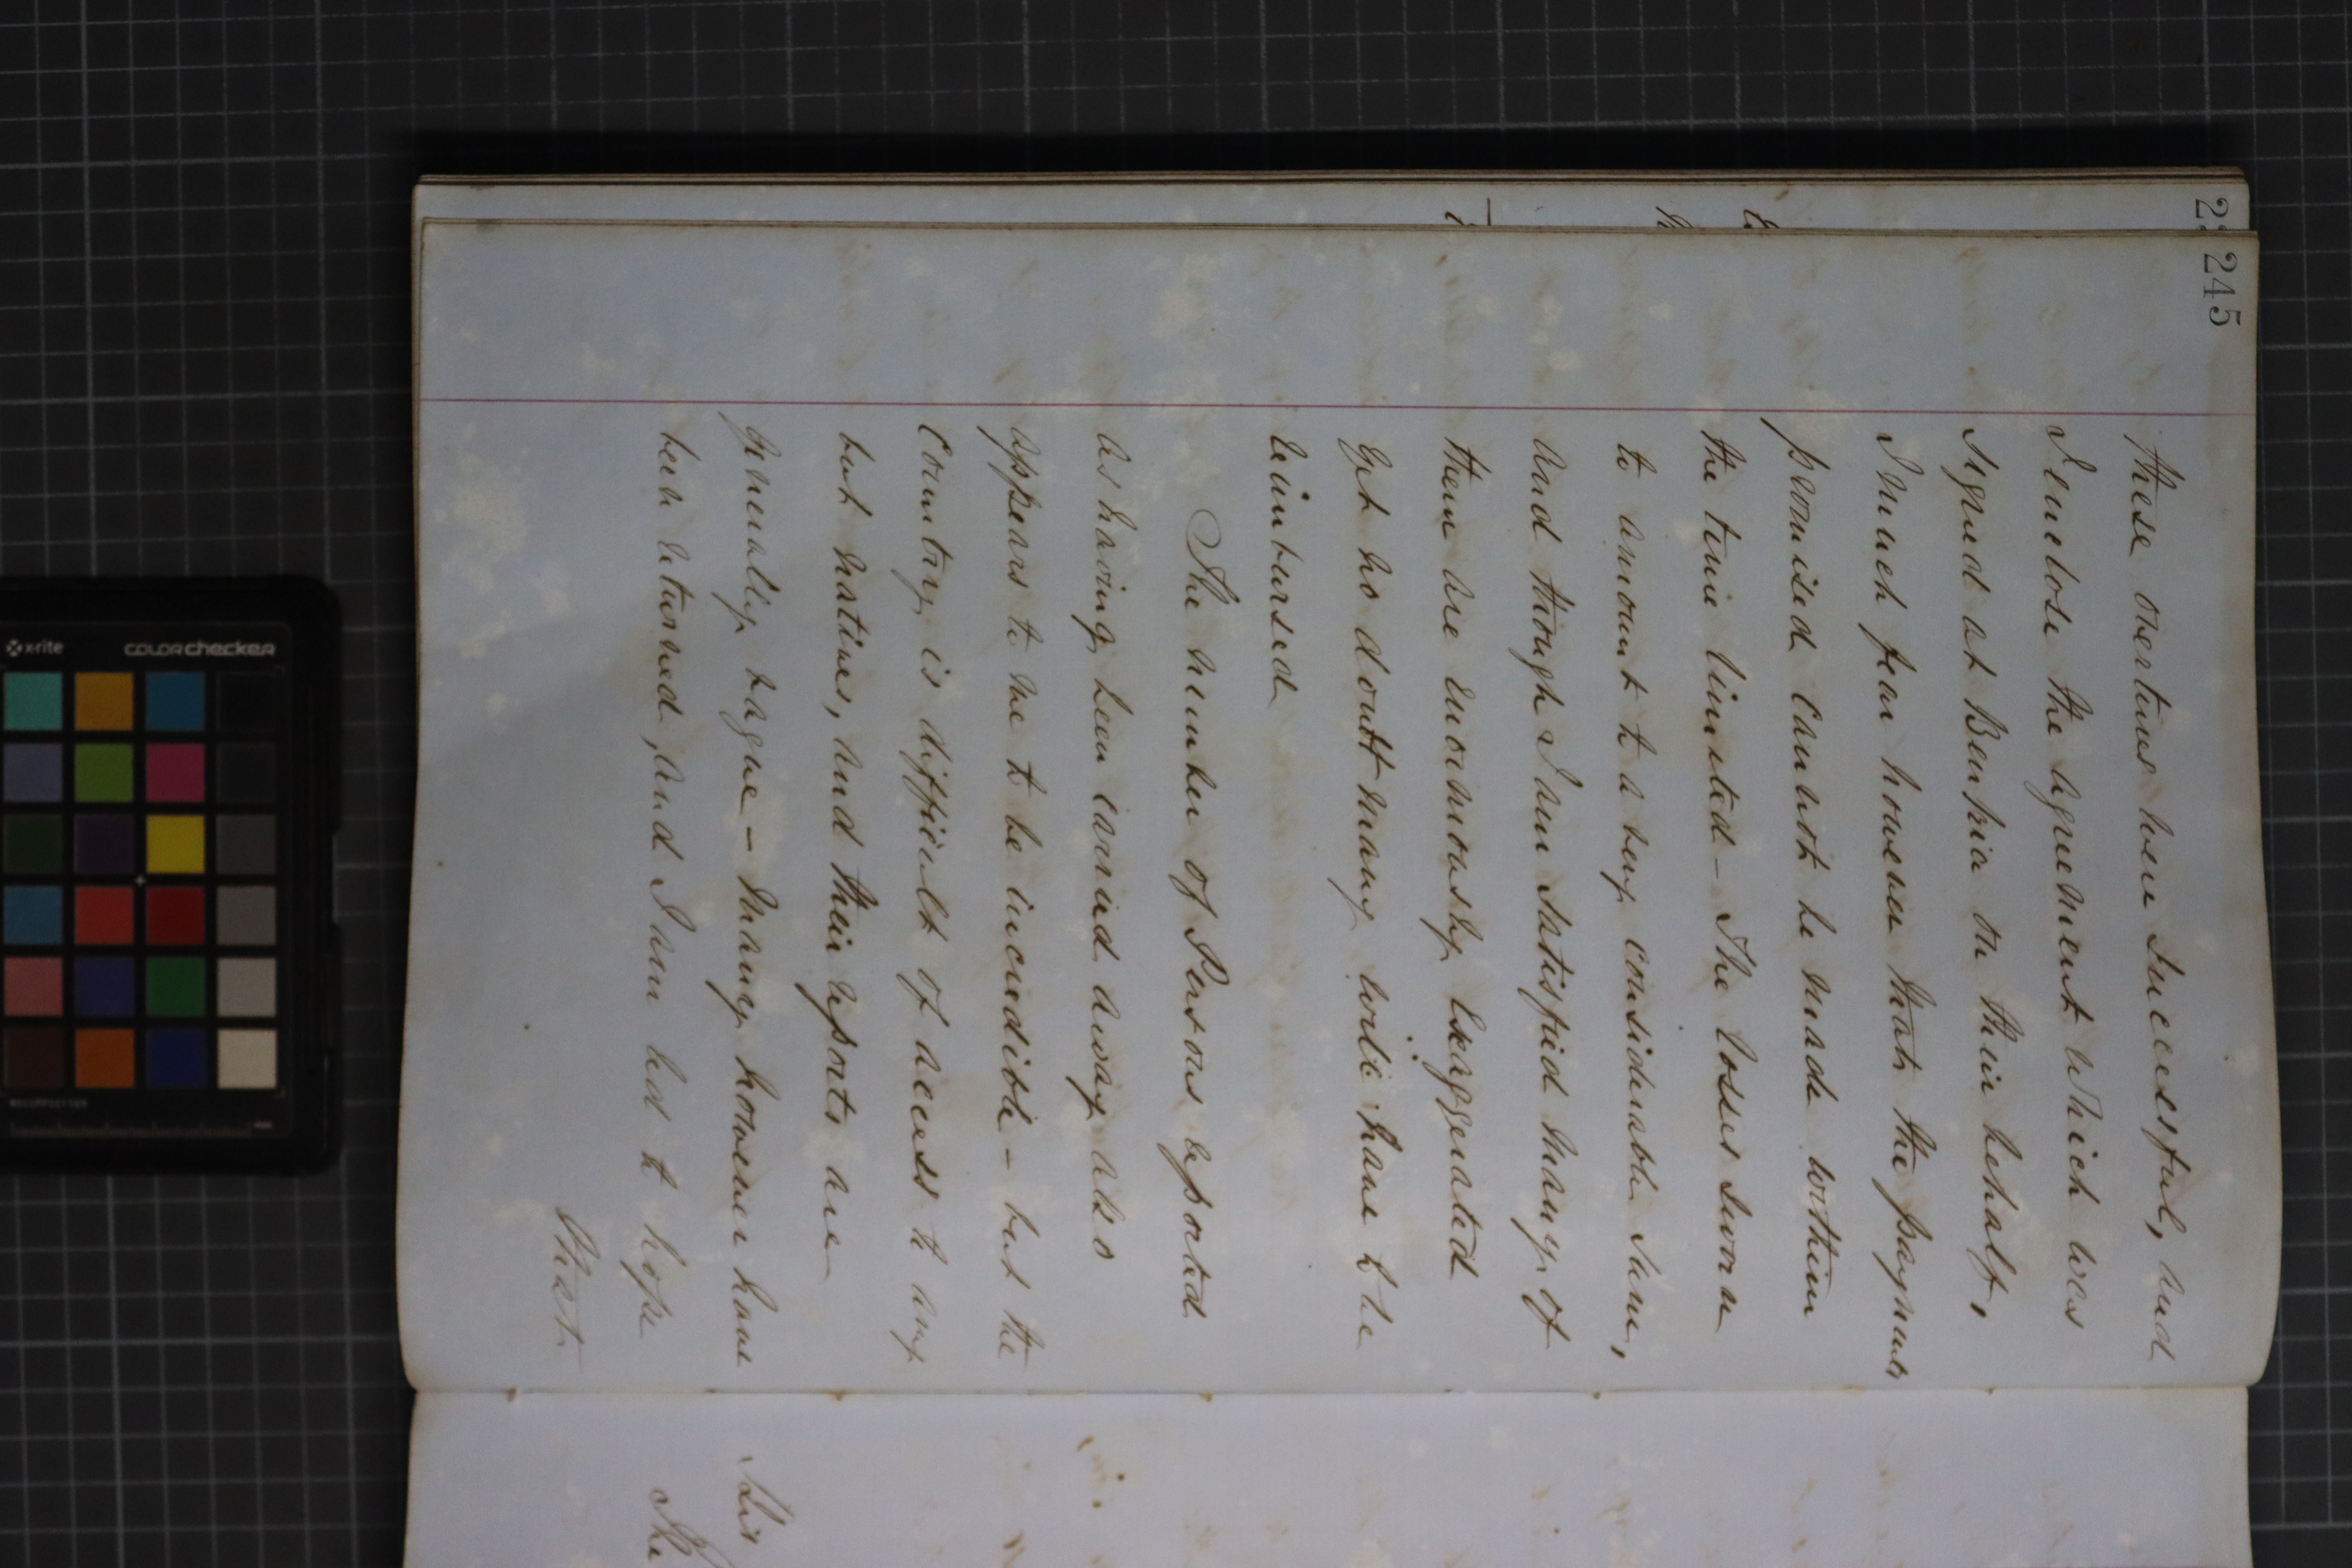 245
these overtures were successful, and
I enclose the agreement which was
signed at Benkia on their behalf,
I much fear however that the payments
promised cannot be made within
the time limited - The losses sworn
to amount to a very considerable sum,
and though I am satisfied many of
them are enormously exaggerated
yet no doubt many will have to be
reimbursed
The number of Persons reported
as having been carried away also
appears to me to be incredible - but the
Country is difficult of access to any
but natives, and their reports are
generally vague - many however have
been returned, and I am led to hope
that
This
The
x-rite
colorchecker